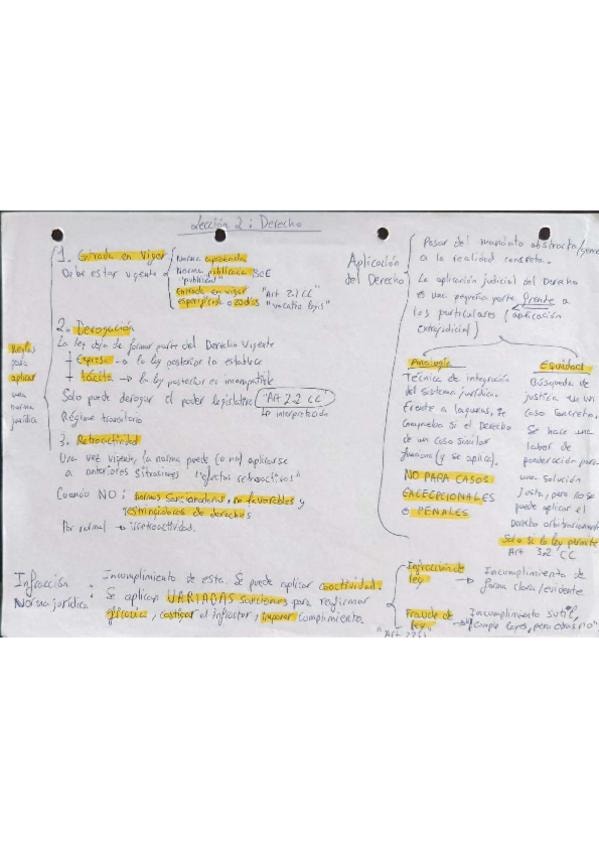 Lección 2: Derecho
Reglas para aplicar una norma jurídica
1. Entrada en Vigor
Debe estar vigente
Norma aprobada
Norma publicada BOE
"publicidad"
Entrada en vigor "Art 2.1 CC"
específica o 20 días "vacatio legis"
2. Derogación
La ley deja de formar parte del Derecho Vigente
Expresa → la ley posterior lo establece
tácita → la ley posterior es incompatible
Solo puede derogar el poder legislativo "Art 2.2 CC"
↳ interpretación
Régimen transitorio
3. Retroactividad
Una vez vigente, la norma puede (o no) aplicarse
a anteriores situaciones "efectos retroactivos"
Cuando NO: normas sancionadoras, no favorables y
restringidoras de derechos
Por normal → irretroactividad.
Aplicación
del Derecho
Pasar del mandato abstracto/
a la realidad concreta.
La aplicación judicial del Derecho
es una pequeña parte frente a
los particulares (aplicación
extrajudicial)
Analogía
Técnica de integración
del sistema jurídico.
Frente a lagunas, se
comprueba si el Derecho
de un caso similar
funciona (y se aplica).
NO PARA CASOS
EXCEPCIONALES
o PENALES
Equidad
Búsqueda de
justicia en un
caso concreto.
Se hace una
labor de
ponderación para
una solución
justa, pero no se
puede aplicar el
Derecho arbitrariamente
Solo si la ley permite
Art 3.2 CC
Infracción
Norma jurídica:
Incumplimiento de esta. Se puede aplicar coactividad.
Se aplican VARIADAS sanciones para reafirmar
eficacia, castigar al infractor, imponer cumplimiento.
Infracción de
ley → Incumplimiento de
forma clara/evidente
Fraude de
ley → Incumplimiento sutil,
"cumple leyes, pero otras no"